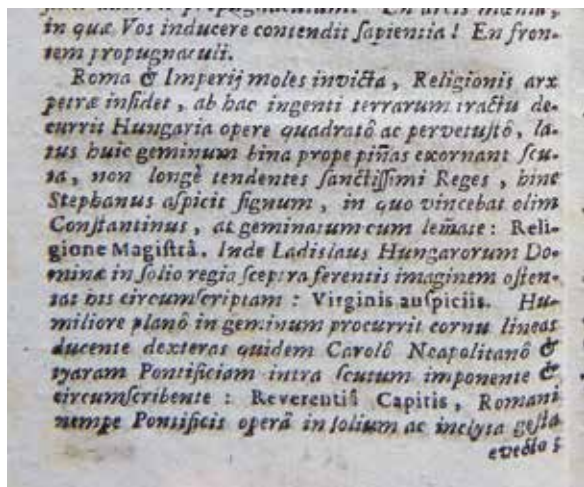 in quæ Vos inducere contendit ſapientia! En fron-
tem propugnaculi.
Roma & Imperij moles invicta, Religionis arx
petræ inſidet, ab hac ingenti terrarum tractu de-
currit Hungaria opere quadratô ac pervetuſtô, la-
tus huic geminum bina prope piñas exornant ſcu-
ta, non longè tendentes ſanctiſſimi Reges, hinc
Stephanus aſpicit ſignum, in quo vincebat olim
Conſtantinus, at geminatum cum lem̃ate: Reli-
gione Magiſtrâ. Inde Ladislaus Hungarorum Do-
minæ in ſolio regia ſceptra ferentis imaginem oſten-
tat his circumſcriptam: Virginis auſpiciis. Hu-
miliore planô in geminum procurrit cornu lineas
ducente dexteras quidem Carolô Neapolitanô &
tyaram Pontificiam intra ſcutum imponente &
circumſcribente: Reverentiâ Capitis, Romani
nempe Pontificis operâ in ſolium ac inclyta geſta
evecta